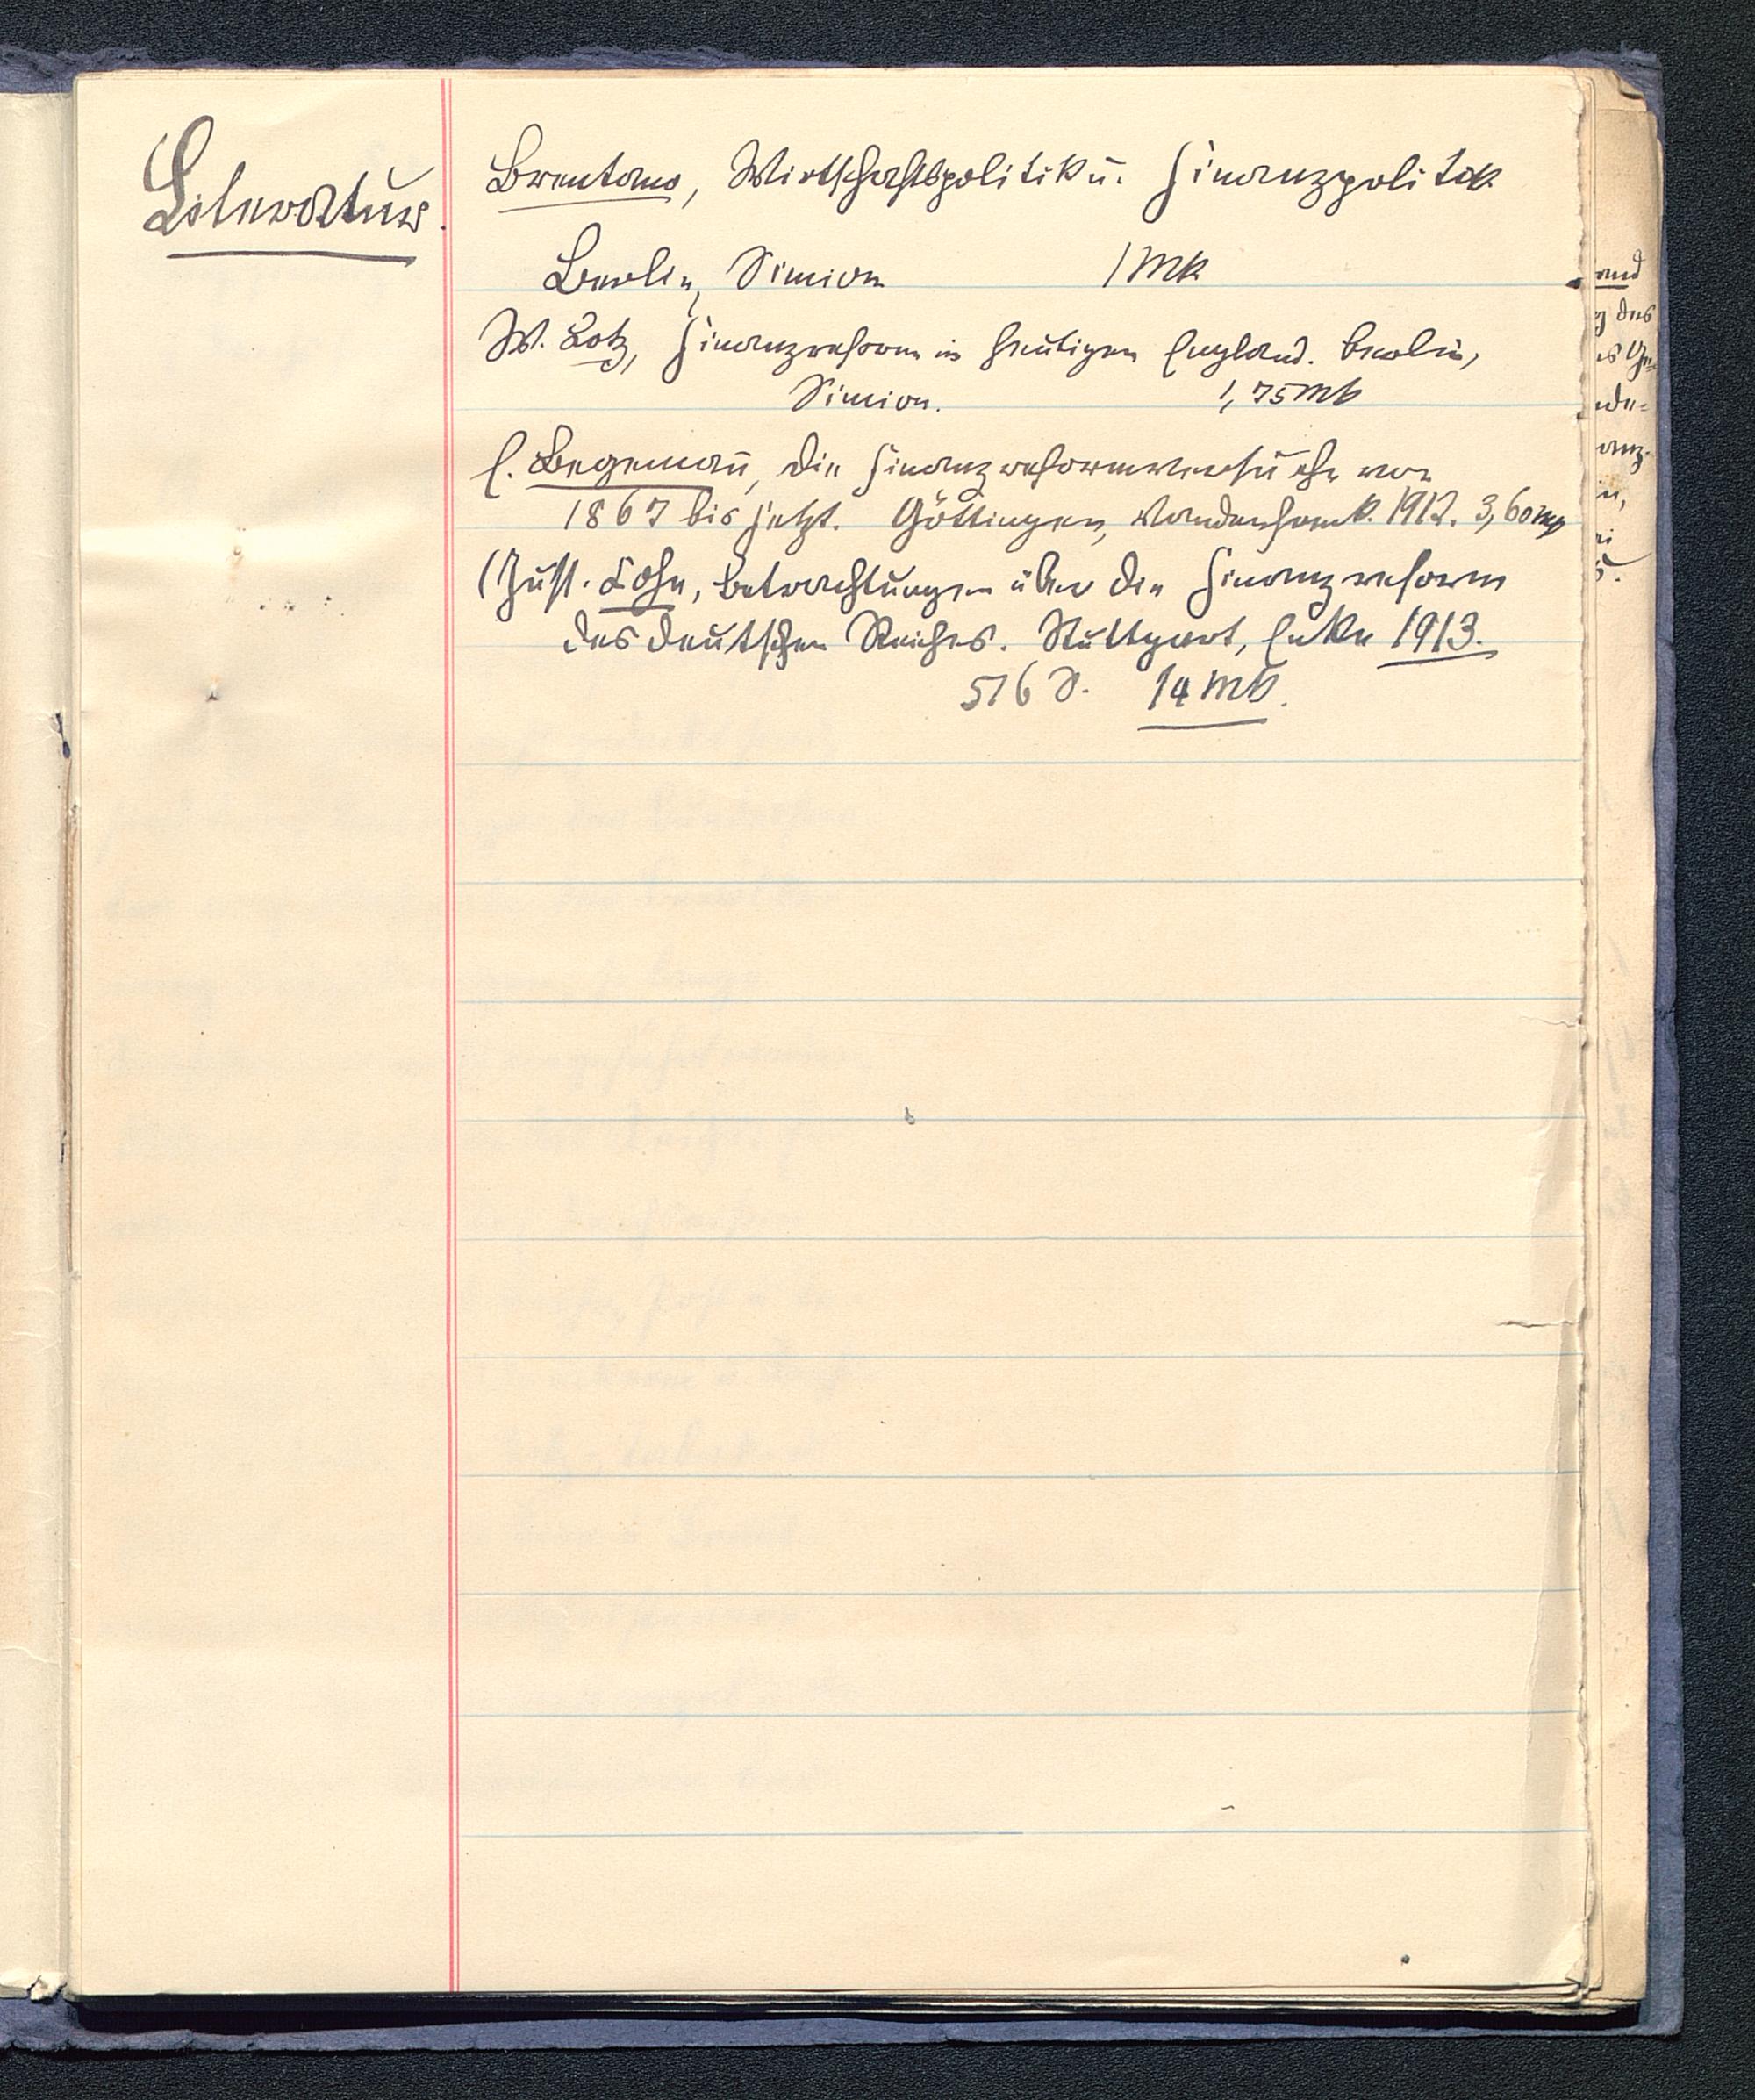 Literatur.
Brentano, Wirtschaftspolitik u. Finanzpolitik
Berlin, Simion 1 Mk
W. Lotz, Finanzreform im heutigen England. Berlin,
Simion. 1,75 Mk
E. Begemann, Die Finanzreformversuche von
1867 bis jetzt. Göttingen, Vandenhoeck. 1912. 3,60 Mk
(Gust. Cohn, Betrachtungen über die Finanzreform
des deutschen Reiches. Stuttgart, Enke 1913.
516 S. 14 Mk.